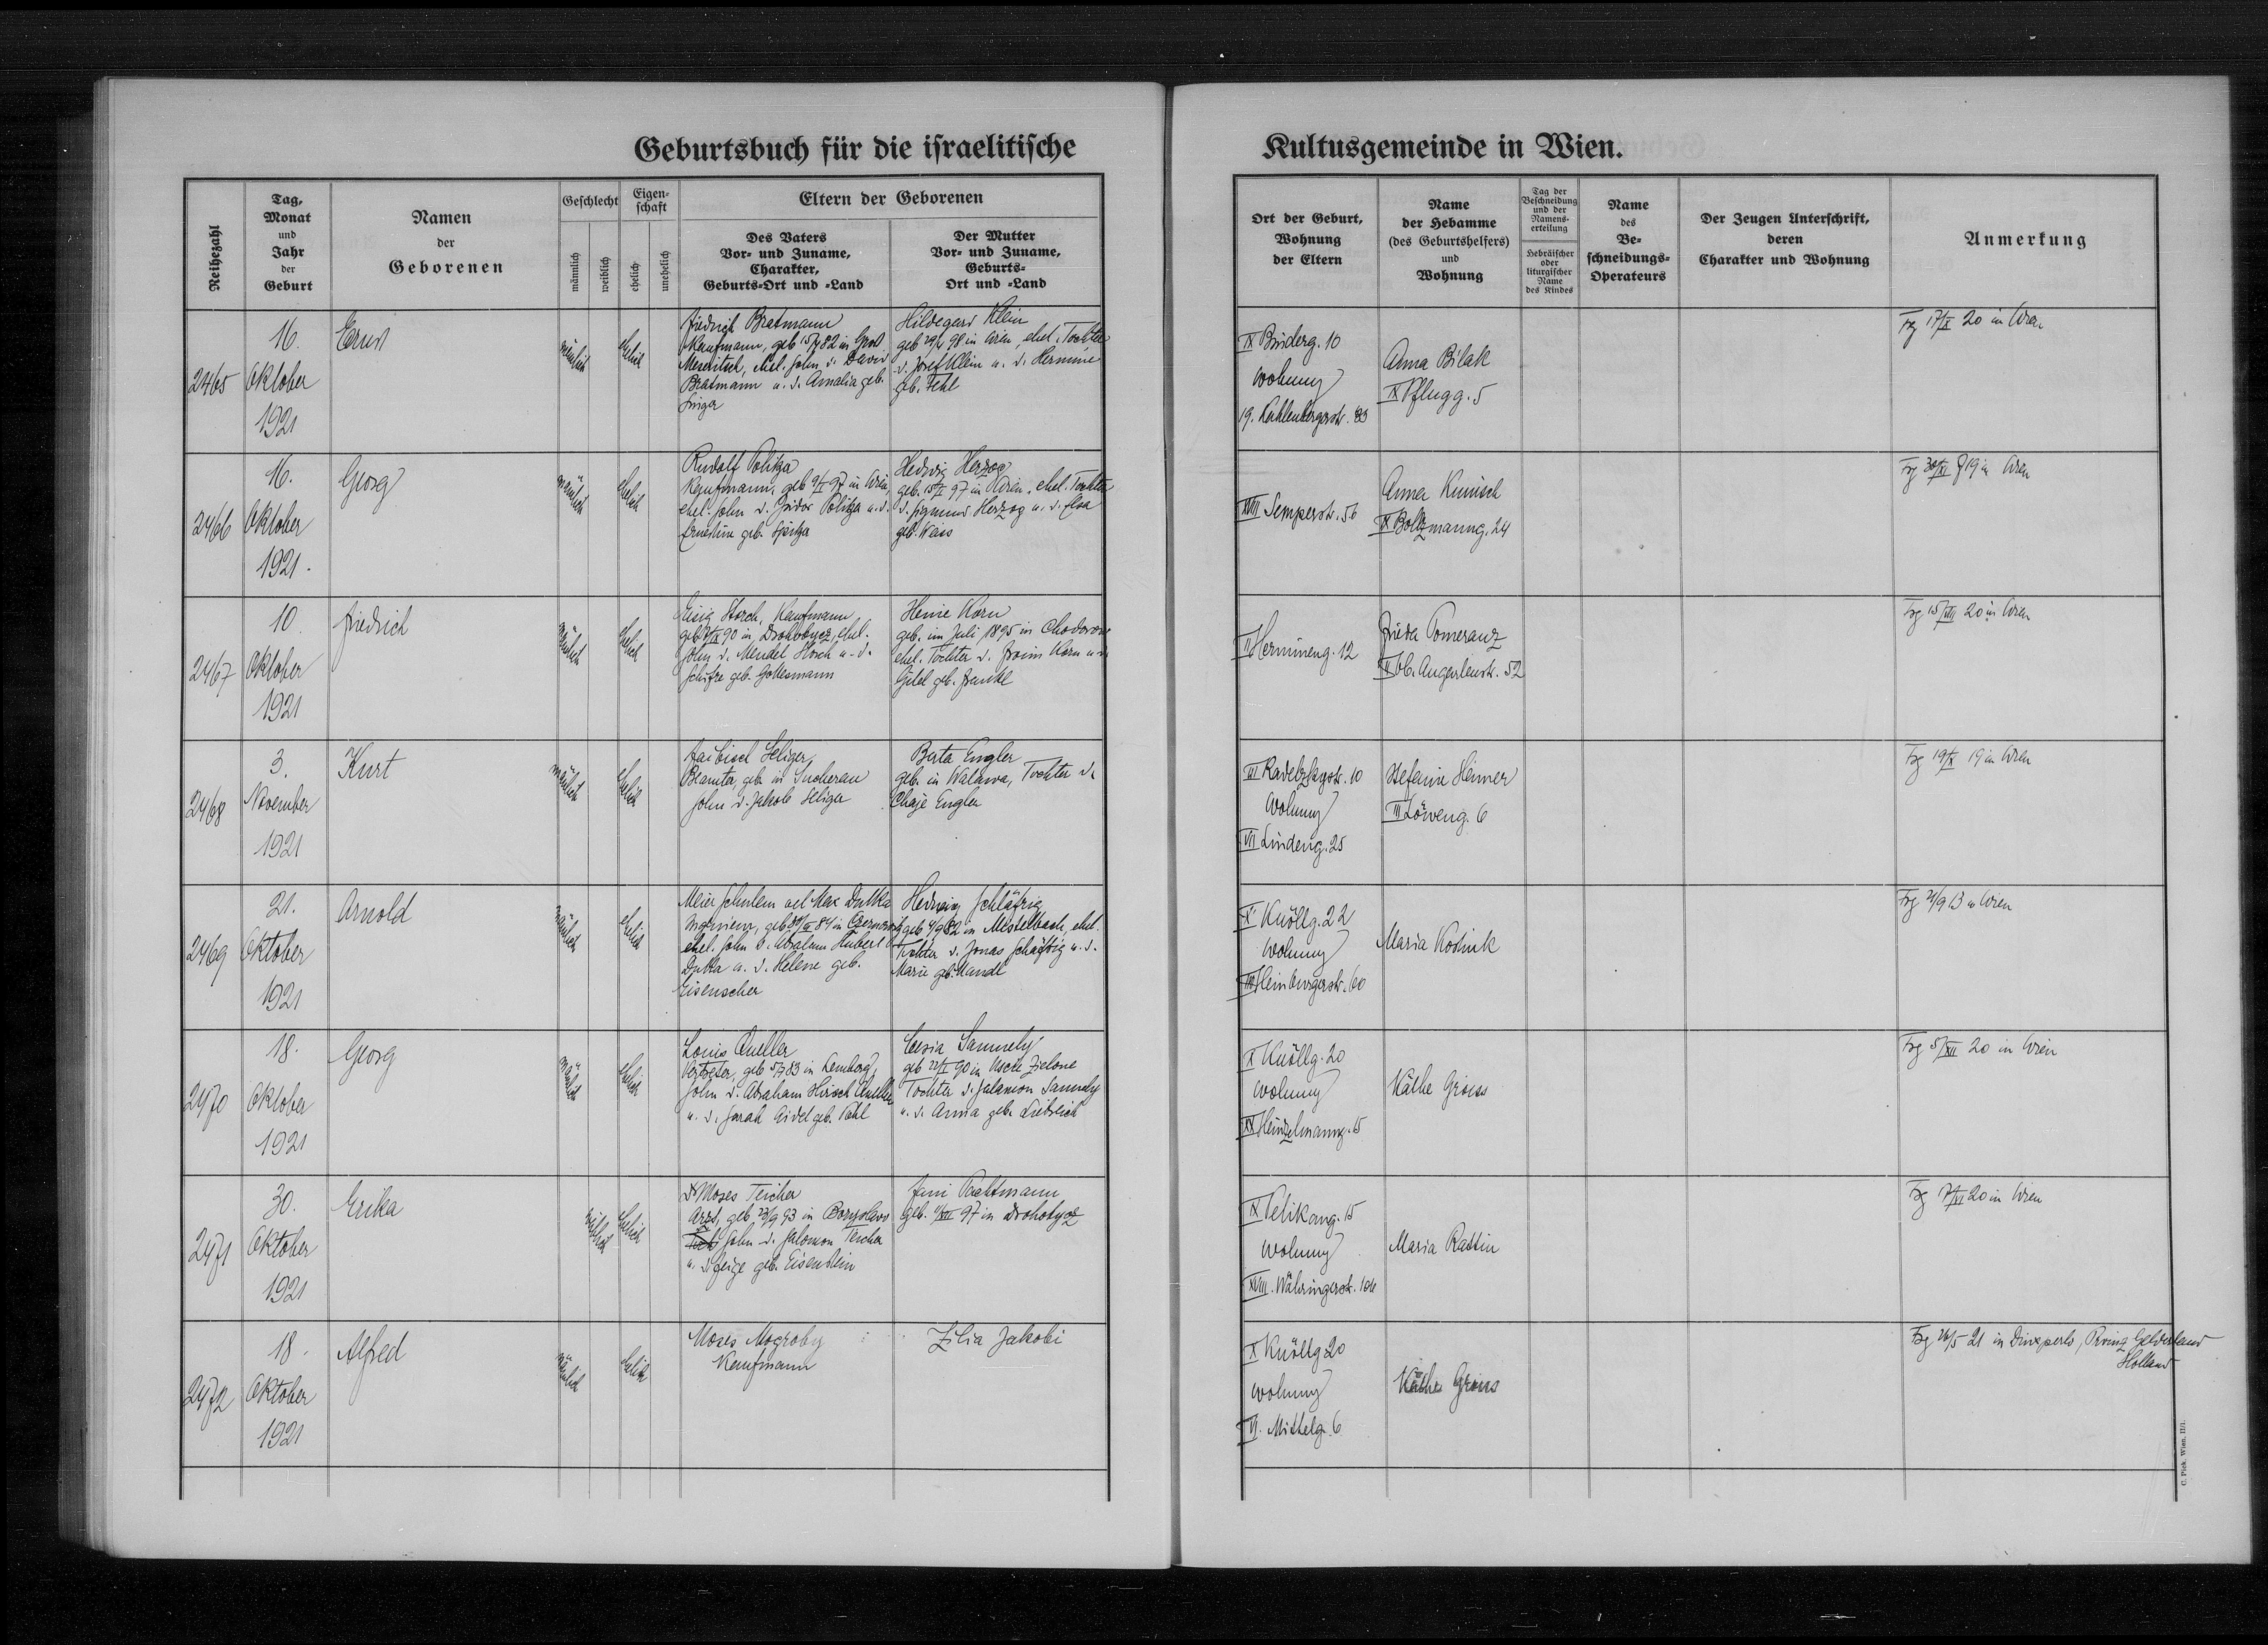 Geburtsbuch für die israelitische
Kultusgemeinde in Wien.
Reihezahl
Tag,
Monat
und
Jahr
der
Geburt
Namen
der
Geborenen
Geschlecht
männlich
weiblich
Eigen-
schaft
ehelich
unehelich
Eltern der Geborenen
Des Vaters
Vor- und Zuname,
Charakter,
Geburts-Ort und -Land
Der Mutter
Vor- und Zuname,
Geburts-
Ort und -Land
Ort der Geburt,
Wohnung
der Eltern
Name
der Hebamme
(des Geburtshelfers)
und
Wohnung
Tag der
Beschneidung
und der
Namens-
erteilung
Hebräischer
oder
liturgischer
Name
des Kindes
Name
des
Be-
schneidungs-
Operateurs
Der Zeugen Unterschrift,
deren
Charakter und Wohnung
Anmerkung
2465
16.
Oktober
1921
Ernst
männlich
Ehelich
Friedrich Bratmann
Kaufmann, geb 15/7 82 in Groß
Meseritsch, ehel. Sohn d. David
Bratmann u. d. Amalia geb.
Singer
Hildegard Klein
geb 29/ 98 in Wien, ehel. Tochter
d. Josef Klein u. d. Hermine
geb. Fehl
IX Binderg. 10
Wohnung
19. Kahlenbergerstr.
Anna Bilak
IX Pflugg. 5
Trg 17/X 20 in Wien
2466
16.
Oktober
1921.
Georg
männlich
Ehelich
Rudolf Politza
Kaufmann, geb 9/I 97 in Wien,
ehel. Sohn d. Isidor Politza u. d.
Ernestine geb. Spitza
Hedwig Herzog
geb. 15/I 97 in Wien, ehel. Tochter
d. Sigmund Herzog u. d. Elsa
geb. Weiss
XVIII Semperstr. 56
Anna Kunisch
IX Boltzmanng. 24
Trg 30/XI 19 in Wien
2467
10.
Oktober
1921
Friedrich
männlich
Ehelich
Eisig Storch, Kaufmann
geb /IX 90 in Drohobycz, ehel.
Sohn d. Mendel Storch u. d.
Schifre geb. Gottesmann
Henie Korn
geb. im Juli 1895 in Chodorow
ehel. Tochter d. Froim Korn u d
Gitel geb. Frenkel
II Hermineng. 12
Frieda Pomeranz
II Ob. Augartenstr. 52
Trg 15/VIII 20 in Wien
2468
3.
November
1921
Kurt
männlich
Ehelich
Faibisch Seliger
Beamter, geb. in Sucherau
Sohn d. Jakob Seliger
Berta Engler
geb. in Walawa, Tochter d.
Chaje Engler
III Radetzkystr. 10
Wohnung
VII Lindeng. 25
Stefanie Heimer
III Löweng. 6
Trg 19/X 19 in Wien
2469
21.
Oktober
1921
Arnold
männlich
ehelich
Meier Schulem vel Max Dutka
Ingenieur, geb /IV 84 in Czernowitz
ehel. Sohn d. Abraham Hubert
Dutka u. d. Helene geb.
Eisenscher
Hedwig Schläfrig
geb 4/9 82 in Mistelbach, ehel.
Tochter d. Jonas Schläfrig u. d.
Marie geb. Mandl
X Knöllg. 22
Wohnung
III Hainburgerstr. 60
Maria Kostnik
Trg 21/9 13 in Wien
2470
18.
Oktober
1921
Georg
männlich
Ehelich
Louis Queller
Vertreter, geb 5/7 83 in Lemberg,
Sohn d. Abraham Hirsch Queller
u. d. Sarah Aidel geb. Pohl
Cesia Samuely
geb 22/I 90 in Uscie Zielone
Tochter d. Salamon Samuely
u. d. Anna geb. Liebreich
X Knöllg. 20
Wohnung
XX Heinzelmanng. 15
Käthe Grois
Trg 5/XII 20 in Wien
2471
30.
Oktober
1921
Erika
weiblich
Ehelich
Dr Moses Teicher
Arzt, geb. 23/9 93 in Boryslaw
Sohn d. Salomon Teicher
u. d. Feige geb. Eisenstein
Fani Pachtmann
geb. /XII 97 in Drohobycz
IX Pelikang. 15
Wohnung
XVIII. Währingerstr.
Maria Rattin
Trg /XI 20 in Wien
2472
18.
Oktober
1921
Alfred
männlich
Ehelich
Moses Mogroby
Kaufmann
Zilia Jakobi
X Knöllg 20
Wohnung
VI. Mittelg. 6
Käthe Grois
Trg 24/5 21 in Dinxperlo, Provinz Gelderland
Holland
C. Piek, Wien, II/1.